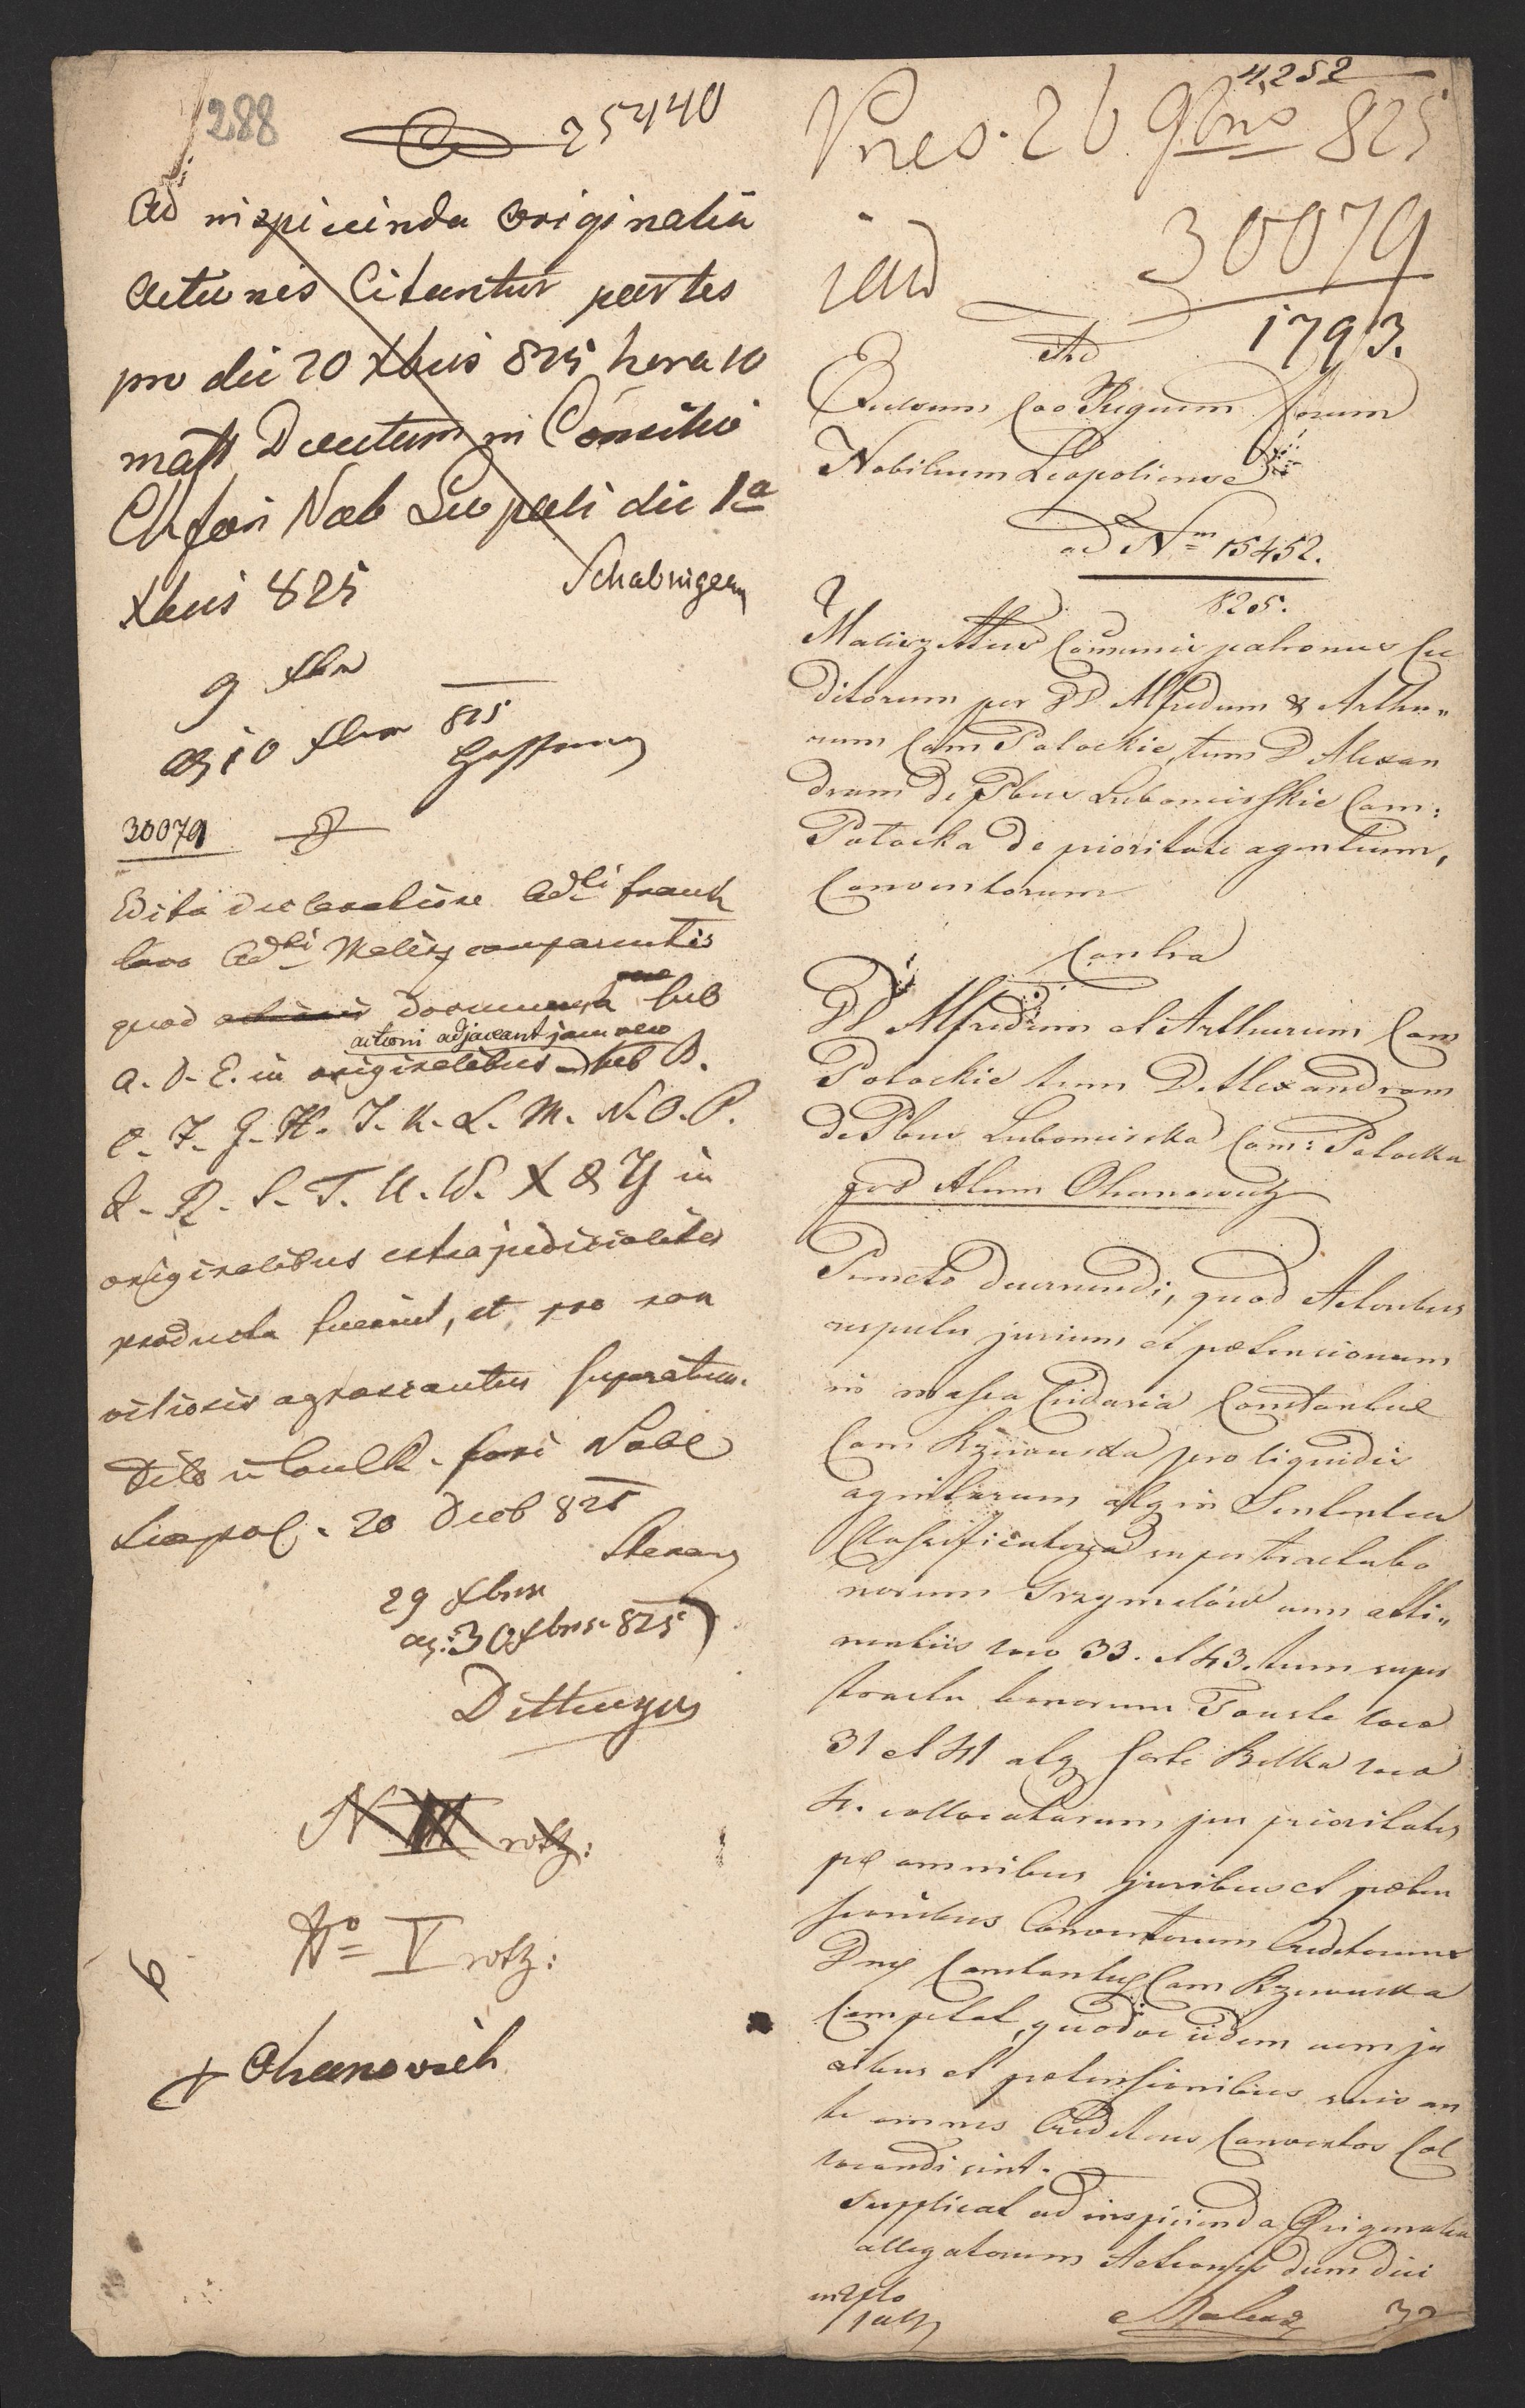 288
25440
Ad inspicienda originalia
Actionis Citantur partes
pro die 20 Xbris 825 hora 10
matt Decretum in Consilio
CR fori Nob Leopoli die 1a
Xbris 825
Schabinger
9 Xbr
10 Xbr 825
30079
Edita declaratione Adti
loco Adti Malisz comparentis
quod actionis Documenta sub
actioni adjaceant jam vero
A. D. E. in originalibus sub B.
C. F. G. H. I. K. L. M. N. O. P.
Q. R. S. T. U. W. X & Y in
originalibus extrajudicialiter
producta fuerint, et pro non
vitiosis agnoscantur superatum.
fori Nobl
Leopol. 20 Decb 825
29 Xbris
30 Xbris 825
N III rotz:
No V rotz:
6
Ohanowich
4,252
Pres. 26 9bris 825
30079
1793.
Ad
Excelsum Caeo Regium Forum
Nobilium Leopoliense
ad Nm 15452.
825.
Malisz Adtus Communis patronus Cre
ditorum per DD Alfredum & Arthu„
rum Com Potockie, tum D Alexan
dram de Pbus Lubomirskie Com:
Potocka de prioritate agentium,
Conventorum
Contra
DD Alfredum et Arthurum Com
Potockie tum D. Alexandram
de Pbus Lubomirska Com: Potocka
per Adum Ohanowicz
Puncto decernendi, quod Actoribus
respectu jurium et praetensionum
in massa Cridaria Constantiae
Com Rzewuska pro liquidis
agnitarum atq in Sententia
Classificatoria super tractu bo
norum Grzymalów cum atti„
nentiis loco 33. et 43. tum super
tractu bonorum Touste loco
31 et 41 atq sorte Bilka loco
4. collocatarum, jus prioritatis
prae omnibus juribus et praeten
sionibus Conventorum Creditorum
Dnae Constantiae Com Rzewuska
Competat, quodve iidem cum ju
ribus et praetensionibus suis an
te omnes Creditores Conventos Col
locandi sint.
Supplicat ad inspicienda Originalia
allegatorum Actionis dum dici
in 2plo